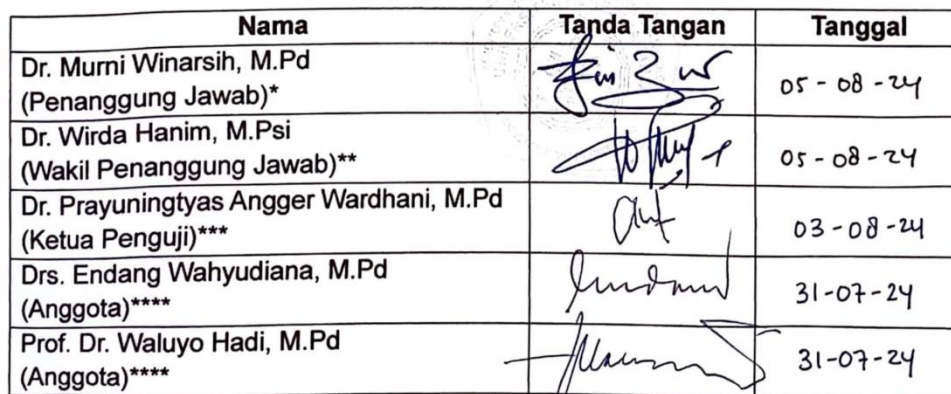 Nama Tanda Tangan Tanggal
Dr. Murni Winarsih, M.Pd
(Penanggung Jawab)* 05-08-24
Dr. Wirda Hanim, M.Psi
(Wakil Penanggung Jawab)** 05-08-24
Dr. Prayuningtyas Angger Wardhani, M.Pd
(Ketua Penguji)*** 03-08-24
Drs. Endang Wahyudiana, M.Pd
(Anggota)**** 31-07-24
Prof. Dr. Waluyo Hadi, M.Pd
(Anggota)**** 31-07-24